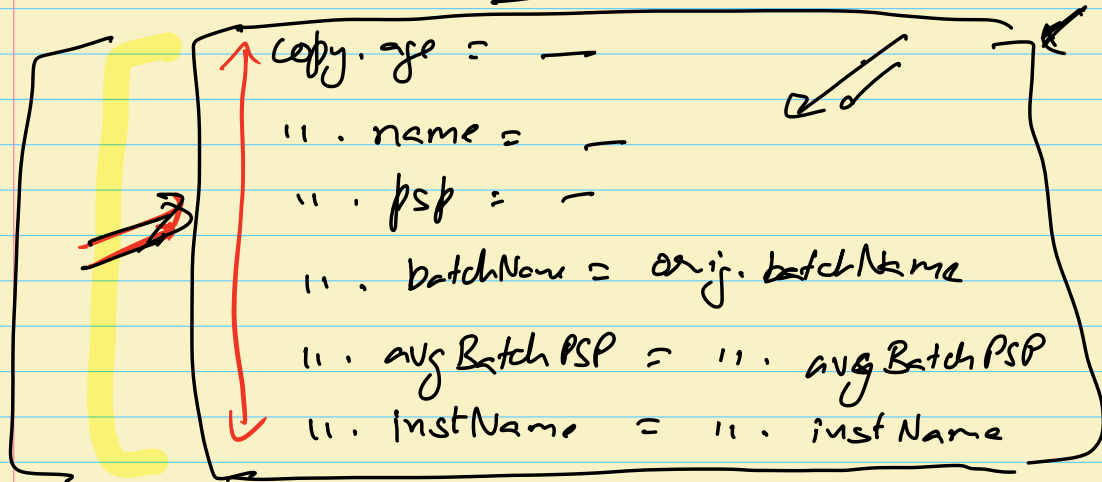 copy. age = —
". name = —
". psp = —
". batchName = orig. batchName
". avgBatchPSP = ". avgBatchPSP
". instName = ". instName